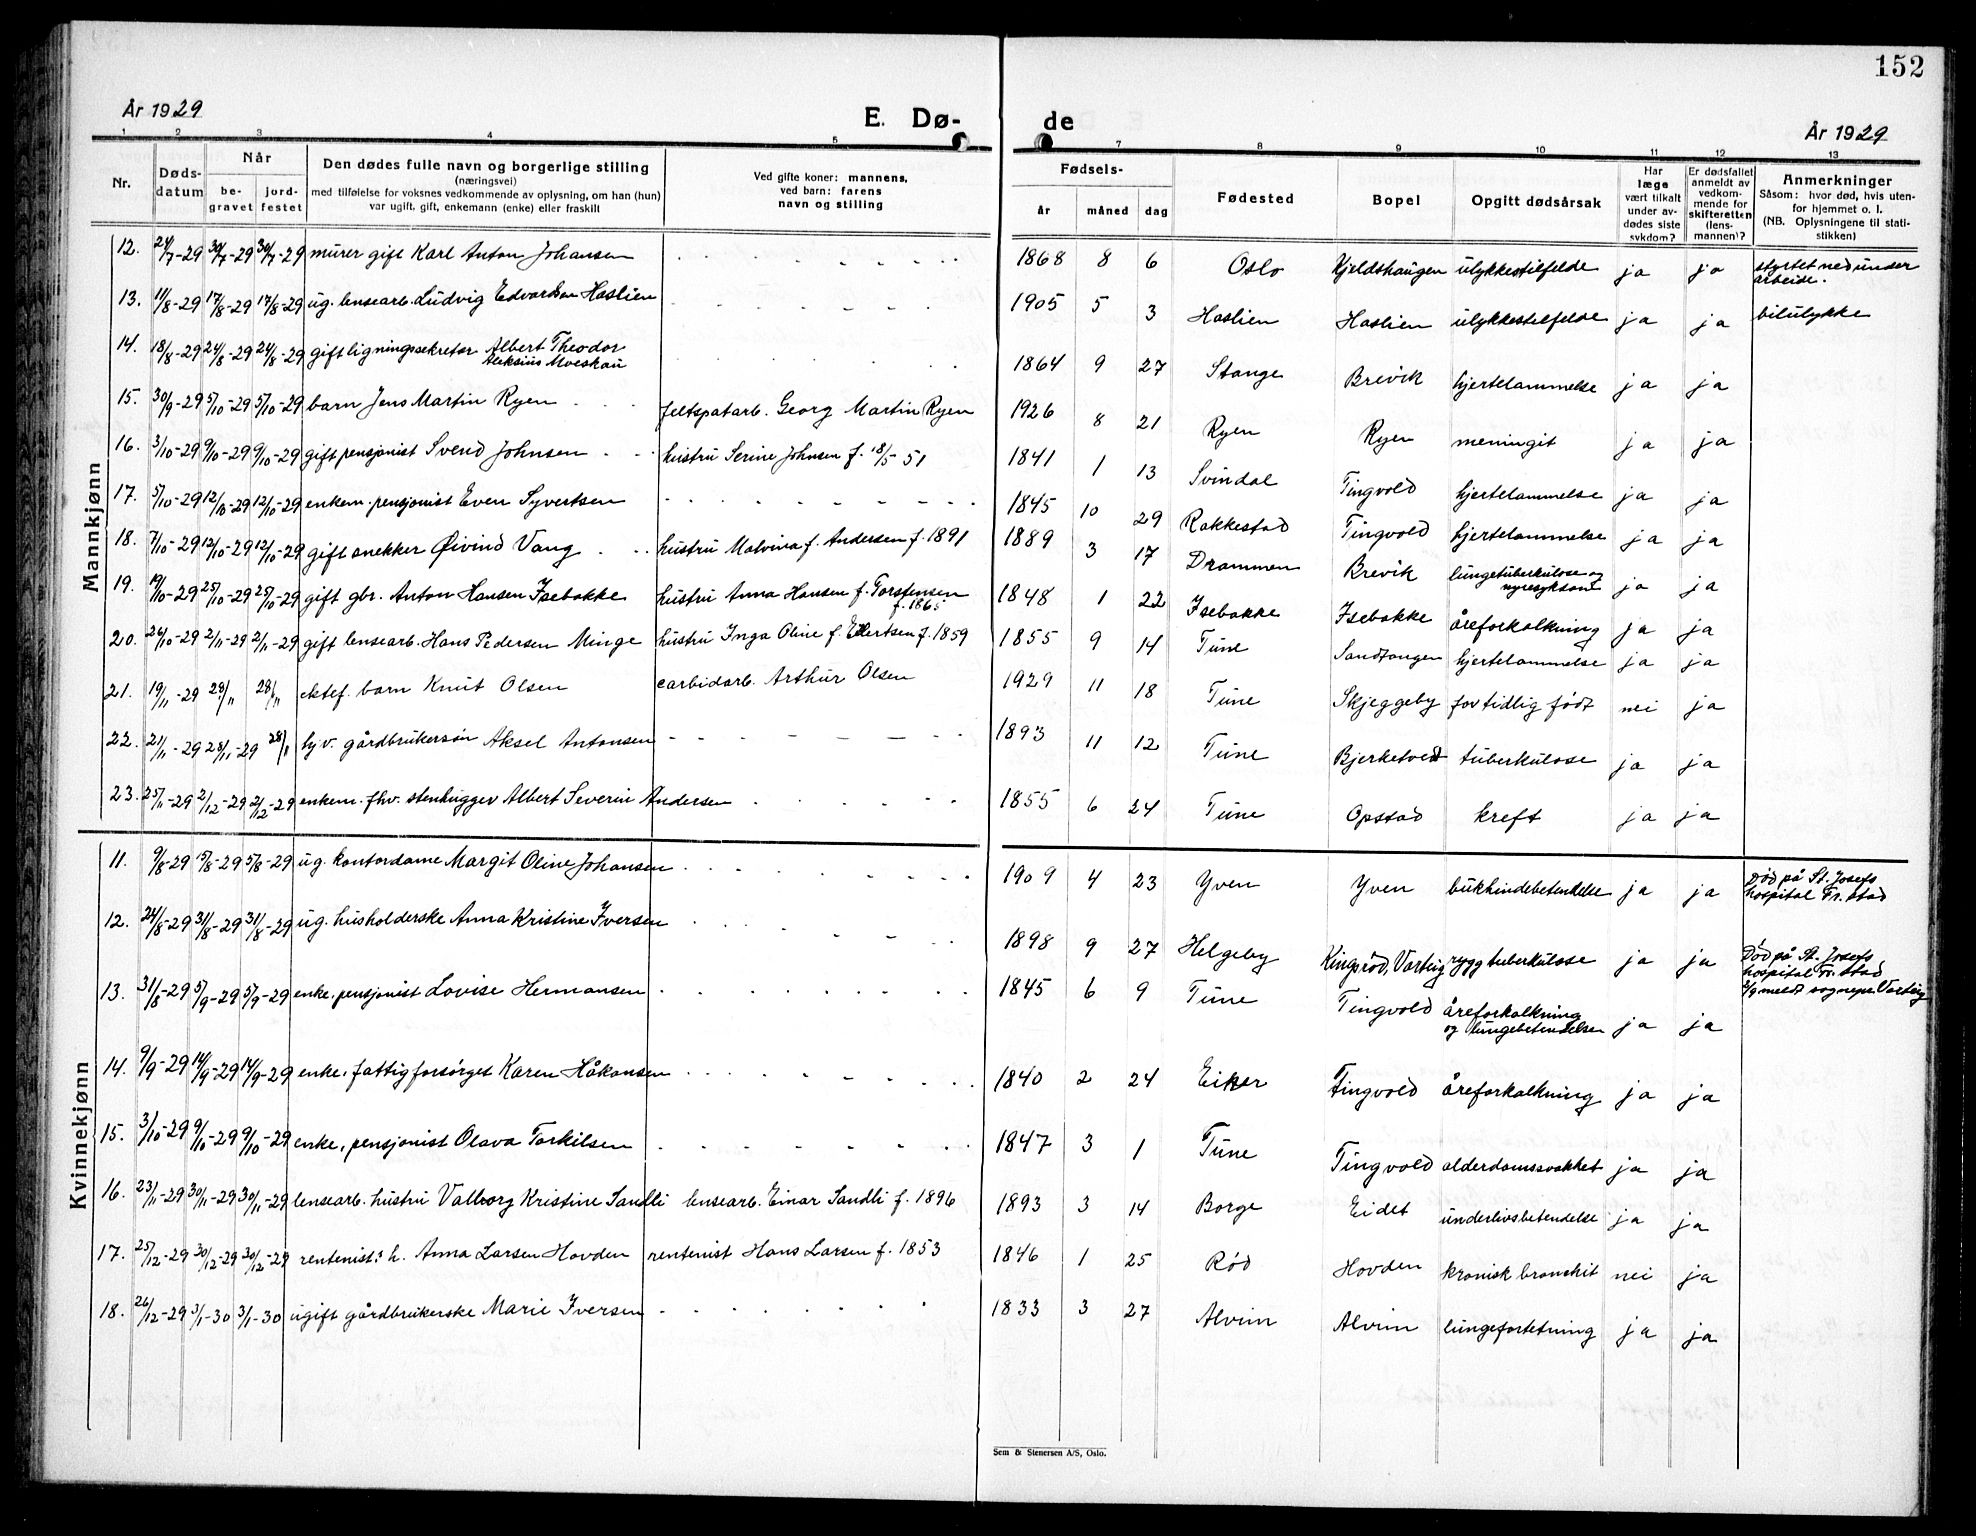 152
År 1929 E. Dø- de År 1929
1 2 3 4 5 7 8 9 10 11 12 13
Nr. Dødsdatum Når begravet jordfestet Den dødes fulle navn og borgerlige stilling (næringsvei) med tilføielse for voksnes vedkommende av oplysning, om han (hun) var ugift, gift, enkemann (enke) eller fraskilt Ved gifte koner: mannens, ved barn: farens navn og stilling Fødsels- år måned dag Fødested Bopel Opgitt dødsårsak Har læge vært tilkalt under avdødes siste sykdom? Er dødsfallet anmeldt av vedkommende for skifteretten (lensmannen)? Anmerkninger Såsom: hvor død, hvis utenfor hjemmet o. l. (NB. Oplysningene til statistikken)
Mannkjønn
12. 24/7-29 30/7-29 30/7-29 murer gift Karl Anton Johansen 1868 8 6 Oslo Kjeldshaugen ulykkestilfelde ja ja styrtet ned under arbeide.
13. 11/8-29 17/8-29 17/8-29 ug. lensearb. Ludvig Edvardsen Haslien 1905 5 3 Haslien Haslien ulykkestilfelde ja ja bilulykke
14. 18/8-29 24/8-29 24/8-29 gift ligningssekretær Albert Theodor Aleksius Moeskau 1864 9 27 Stange Brevik hjertelammelse ja ja
15. 30/9-29 5/10-29 5/10-29 barn Jens Martin Ryen feltspatarb. Georg Martin Ryen 1926 8 21 Ryen Ryen meningit ja ja
16. 3/10-29 9/10-29 9/10-29 gift pensjonist Svend Johnsen hustru Serine Johnsen f. 18/5-51 1841 1 13 Svindal Tingvold hjertelammelse ja ja
17. 5/10-29 12/10-29 12/10-29 enkem. pensjonist Even Syvertsen 1845 10 29 Rakkestad Tingvold hjertelammelse ja ja
18. 7/10-29 12/10-29 12/10-29 gift snekker Øivind Vang hustru Malvina f. Andersen f. 1891 1889 3 17 Drammen Brevik lungetuberkulose og nyresykdom ja ja
19. 19/10-29 25/10-29 25/10-29 gift gbr. Anton Hansen Isebakke hustru Anna Hansen f. Torstensen f. 1865 1848 1 22 Isebakke Isebakke åreforkalkning ja ja
20. 24/10-29 2/11-29 2/11-29 gift lensearb. Hans Pedersen Minge hustru Inga Oline f. Eilertsen f. 1859 1855 9 14 Tune Sandtangen hjertelammelse ja ja
21. 19/11-29 28/11 28/11 ektef. barn Knut Olsen carbidarb. Arthur Olsen 1929 11 18 Tune Skjeggeby for tidlig født nei ja
22. 21/11-29 28/11-29 28/11 hjv. gårdbrukersøn Aksel Antonsen 1893 11 12 Tune Bjerketvedt tuberkulose ja ja
23. 25/11-29 2/12-29 2/12-29 enkem. fhv. stenhugger Albert Severin Andersen 1855 6 24 Tune Opstad kreft ja ja
Kvinnekjønn
11. 9/8-29 15/8-29 15/8-29 ug. kontordame Margit Oline Johansen 1909 4 23 Yven Yven bukhindebetendelse ja ja Død på St. Josefs hospital Fr.stad
12. 24/8-29 31/8-29 31/8-29 ug. husholderske Anna Kristine Iversen 1898 9 27 Helgeby Kingsrød, Varteig ryggtuberkulose ja ja Død på St. Josefs hospital Fr.stad 2/9 meldt sognepr. Varteig
13. 31/8-29 5/9-29 5/9-29 enke, pensjonist Lovise Hermansen 1845 6 9 Tune Tingvold åreforkalkning og lungebetendelse ja ja
14. 9/9-29 14/9-29 14/9-29 enke, fattigforsørget Karen Håkonsen 1840 2 24 Eiker Tingvold åreforkalkning ja ja
15. 3/10-29 9/10-29 9/10-29 enke, pensjonist Olava Torkilsen 1847 3 1 Tune Tingvold alderdomssvakhet ja ja
16. 23/11-29 30/11-29 30/11-29 lensearb. hustru Valborg Kristine Sandli lensearb. Einar Sandli f. 1896 1893 3 14 Borge Eidet underlivsbetendelse ja ja
17. 25/12-29 30/12-29 30/12-29 rentenist's h. Anna Larsen Hovden rentenist Hans Larsen f. 1853 1846 1 25 Rød Hovden kronisk bronchit nei ja
18. 26/12-29 3/1-30 3/1-30 ugift gårdbrukerske Marie Iversen 1833 3 27 Alvim Alvim lungefortetning ja ja
Sem & Stenersen A/S, Oslo.